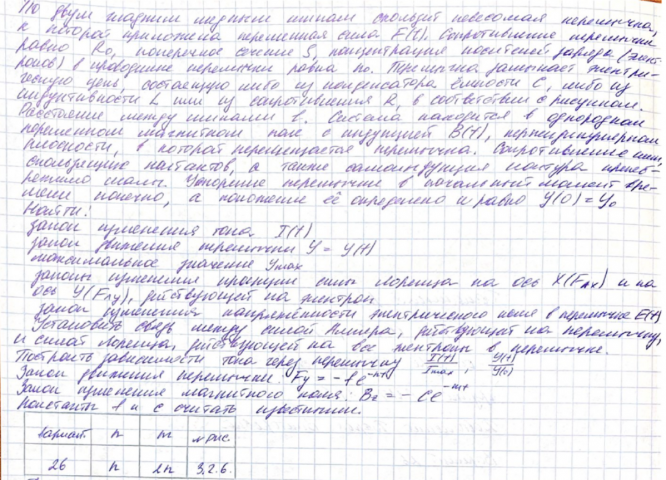 По двум гладким медным шинам скользит невесомая перемычка,
к которой приложена переменная сила F(t). Сопротивление перемычки
равно R₀, поперечное сечение S, концентрация носителей заряда (элект-
ронов) в проводнике перемычки равна n₀. Перемычка замыкает электри-
ческую цепь, состоящую либо из конденсатора ёмкости C, либо из
индуктивности L или из сопротивления R, в соответствии с рисунком.
Расстояние между шинами l. Система находится в однородном
переменном магнитном поле с индукцией B(t), перпендикулярном
плоскости, в которой перемещается перемычка. Сопротивление шин,
скользящих контактов, а также самоиндукция контура пренеб-
режимо малы. Ускорение перемычки в начальный момент вре-
мени конечно, а положение её определено и равно y(0) = y₀
Найти:
закон изменения тока I(t)
закон движения перемычки y = y(t)
максимальное значение ymax
законы изменения проекции силы Лоренца на ось X(Fлx) и на
ось Y(Fлy), действующей на электрон
закон изменения напряжённости электрического поля в перемычке E(t)
Установить связь между силой Ампера, действующей на перемычку,
и силой Лоренца, действующей на все электроны в перемычке.
Построить зависимости тока через перемычку I(t)/Imax ; y(t)/y(0)
Закон движения перемычки: Fy = -fe^-nt
Закон изменения магнитного поля: Bz = -ce^-mt
константы f и c считать известными.
вариант n m № рис.
26 n 2n 3.2.б.